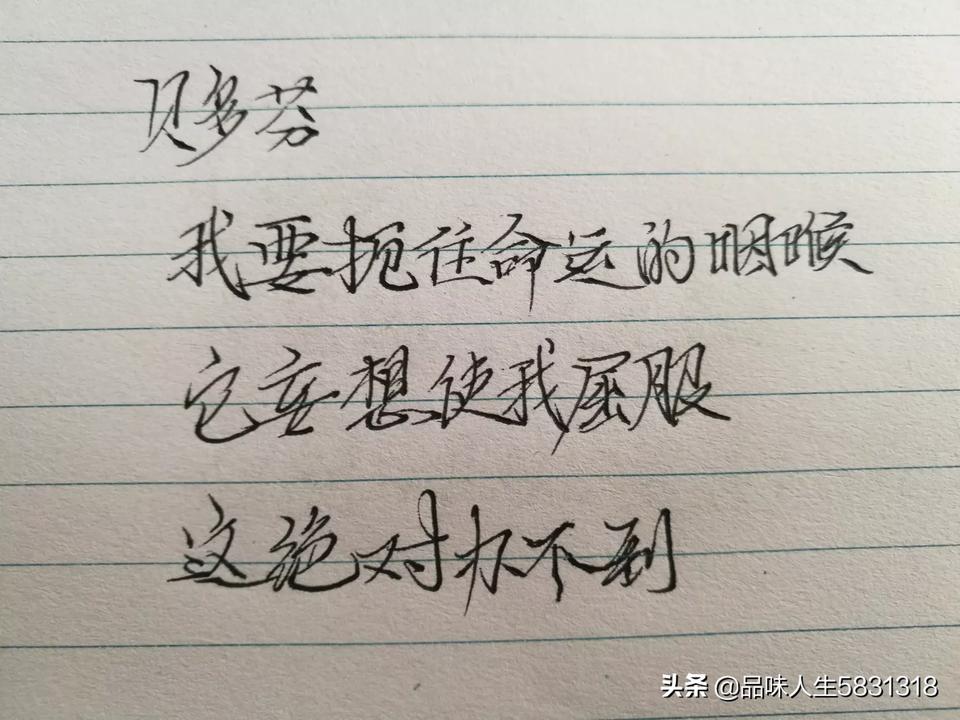 贝多芬
我要扼住命运的咽喉
它妄想使我屈服
这绝对办不到
头条 @品味人生5831318